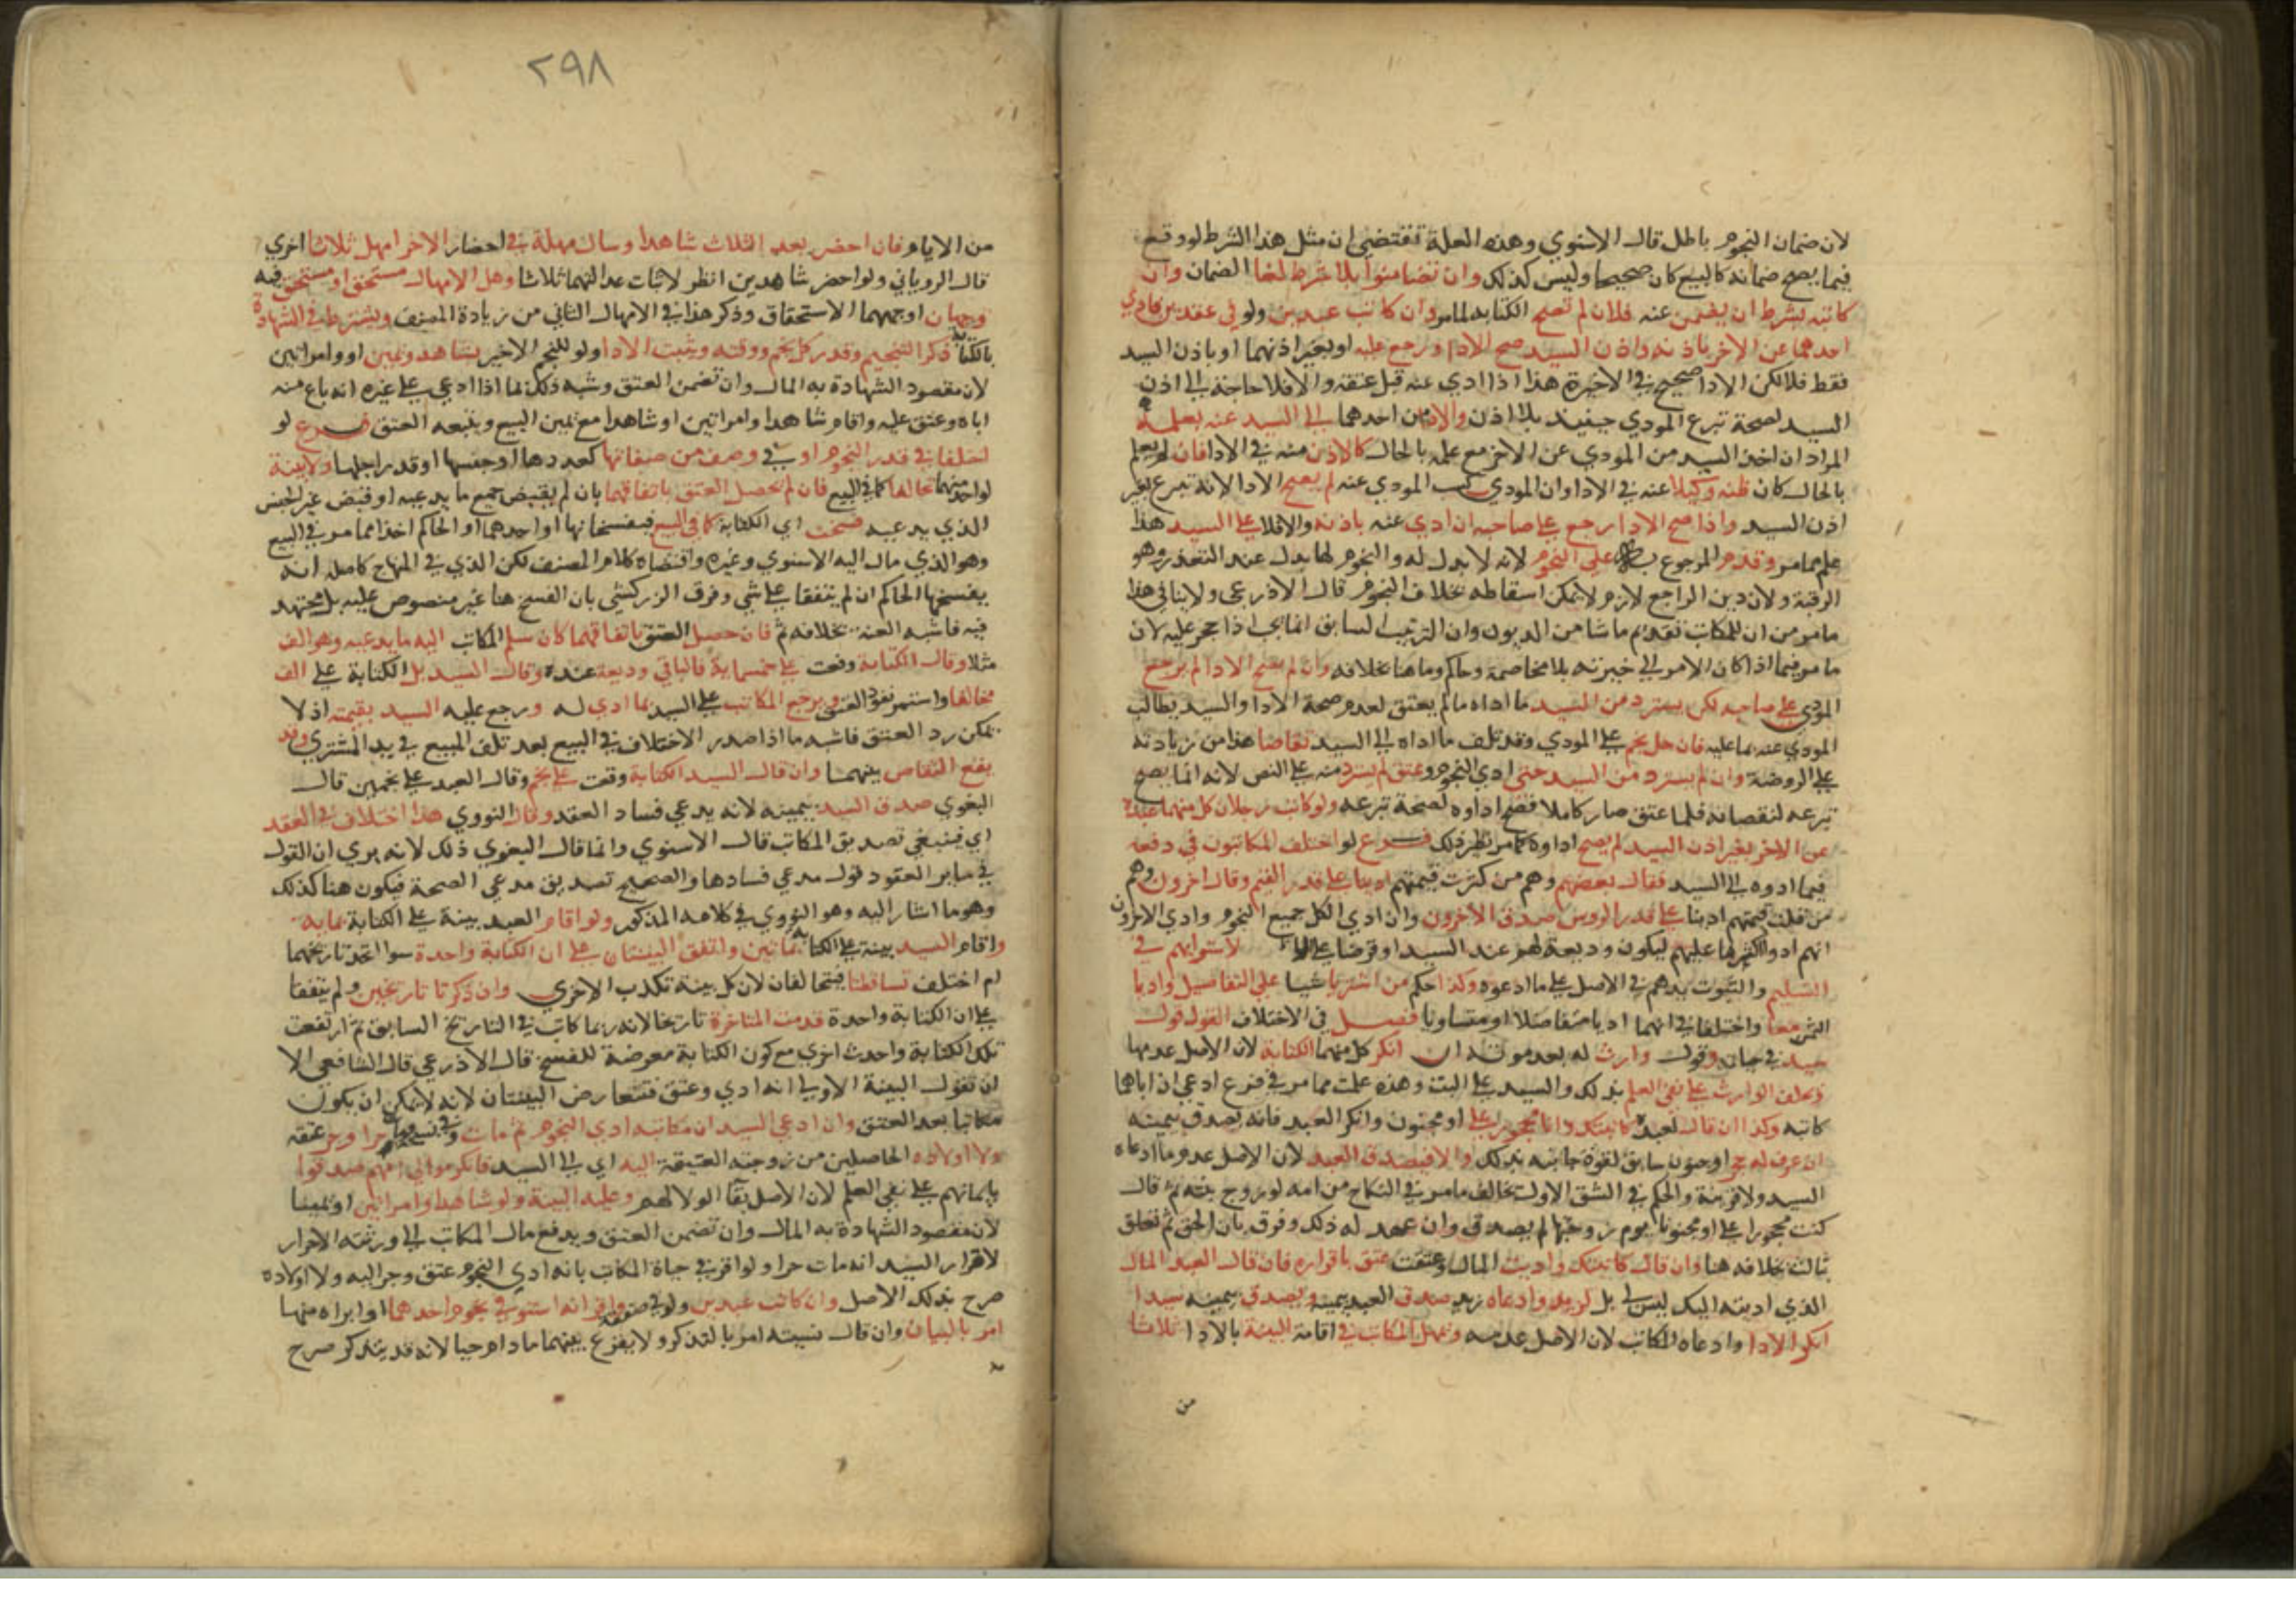 لان ضمان النجوم باطل قال الاسنوي وهذه العلة تقتضي ان مثل هذا الشرط لو وقع
فيما يصح ضمانه كالبيع كان صحيحا وليس كذلك وان تضامنوا بلا شرط لغا الضمان وان
كاتبه بشرط ان يضمن عنه فلان لم تصح الكتابة لما مر وان كاتب عبدين ولو في عقدين فادي
احدهما عن الاخر باذنه واذن السيد صح الادا ورجع عليه او بغير اذنهما او باذن السيد
فقط فلا لكن الادا صحيح في الاخيرة هذا اذا ادي عنه قبل عتقه والا فلا حاجة الى اذن
السيد لصحة تبرع المودي حينيذ بلا اذن والاذن من احدهما الى السيد عنه بعلمه
المراد ان اخذ السيد من المودي عن الاخر مع علمه بالحال كالاذن منه في الادا فان لم يعلم
بالحال كان ظنه وكيلا عنه في الادا وان المودي كسب المودي عنه لم يصح الادا لانه تبرع بغير
اذن السيد واذا صح الادا رجع على صاحبه ان ادي عنه باذنه والا فلا على السيد هذا
علم مما مر وقدم المرجوع به على النجوم لانه لا بدل له والنجوم لها بدل عند التعذر وهو
الرقبة ولان دين الراجع لازم لا يمكن اسقاطه بخلاف النجوم قال الاذرعي ولا ينافي هذا
ما مر من ان للمكاتب تقديم ما شا من الديون وان الترتيب السابق انما يجب اذا حجر عليه لان
ما مر فيما اذا كان الامر الى خيرته بلا مخاصمة وحاكم وما هنا بخلافه وان لم يصح الادا لم يرجع
المودي على صاحبه لكن يسترد من السيد ما اداه ما لم يعتق لعدم صحة الادا والسيد يطالب
المودي عنه بما عليه فان حل نجم على المودي وقد تلف ما اداه الى السيد تقاصا هذا من زيادته
على الروضة وان لم يسترد من السيد حتى ادي النجوم وعتق لم يسترد منه على النص لانه انما يصح
تبرعه لنقصانه فلما عتق صار كاملا فصح اداوه لصحة تبرعه ولو كاتب رجلان كل منهما عبده
عن الاخر بغير اذن السيد لم يصح اداوه كما مر نظير ذلك فرع لو اختلف المكاتبون في دفعة
فيما ادوه الى السيد فقال بعضهم وهم من كثرت قيمتهم ادينا على قدر القيم وقال اخرون وهم
من قلت قيمتهم ادينا على قدر الروس صدق الاخرون وان ادي الكل جميع النجوم وادي الاخرون
انهم ادوا اكثر مما عليهم ليكون وديعة لهم عند السيد او قرضا على لاستوايهم في
التسليم والثبوت يدهم في الاصل على ما ادعوه وكذا حكم من اشتريا شيا على التفاضل واديا
الثمن معا واختلفا في انهما اديا متفاضلا او متساويا فصل في الاختلاف القول قول
سيد في حياته وقول وارث له بعد موته ان انكر كل منهما الكتابة لان الاصل عدمها
ويحلف الوارث على نفي العلم بذلك والسيد على البت وهذه علمت مما مر في فرع ادعي ان اباهما
كاتبه وكذا ان قال لعبده كاتبتك وانا محجور علي او مجنون وانكر العبد فانه يصدق بيمينه
ان عرف له حجر او جنون سابق لقوة جانبه بذلك والا فيصدق العبد لان الاصل عدم ما ادعاه
السيد ولا قرينة والحكم في الشق الاول يخالف ما مر في النكاح من انه لو زوج بنته ثم قال
كنت محجورا علي او مجنونا يوم زوجتها لم يصدق وان عهد له ذلك وفرق بان الحق ثم تعلق
بثالث بخلافه هنا وان قال كاتبتك واديت المال وعتقت عتق باقراره فان قال العبد المال
الذي اديته اليك ليس لي بل لزيد وادعاه زيد صدق العبد بيمينه ويصدق بيمينه سيدا
انكر الادا وادعاه المكاتب لان الاصل عدمه ويمهل المكاتب في اقامة البينة بالادا ثلاثا
من
٢٩٨
من الايام فان احضر بعد الثلاث شاهدا وسال مهلة في احضار الاخر امهل ثلاثا اخري
قال الروياني ولو احضر شاهدين انظر لاثبات عدالتهما ثلاثا وهل الامهال مستحق او مستحق فيه
وجهان اوجههما الاستحقاق وذكر هذا في الامهال الثاني من زيادة المصنف ويشترط في الشهادة
بالكتابة ذكر التنجيم وقدر كل نجم ووقته ويثبت الادا ولو للنجم الاخير بشاهد ويمين او وامراتين
لان مقصود الشهادة به المال وان تضمن العتق وشبه ذلك بما اذا ادعي على غيره انه باع منه
اباه وعتق عليه واقام شاهدا وامراتين او شاهدا مع يمين البيع ويتبعه العتق فرع لو
اختلفا في قدر النجوم او في وصف من صفاتها كعددها او جنسها او قدر اجلها ولا بينة
لواحد منهما تحالفا كما في البيع فان لم يحصل العتق باتفاقهما بان لم يقبض جميع ما يدعيه او قبض غير الجنس
الذي يدعيه فسخت اي الكتابة كما في البيع فيفسخانها او احدهما او الحاكم اخذا مما مر في البيع
وهو الذي مال اليه الاسنوي وغيره واقتضاه كلام المصنف لكن الذي في المنهاج كاصله انه
يفسخها الحاكم ان لم يتفقا على شي وفرق الزركشي بان الفسخ هنا غير منصوص عليه بل مجتهد
فيه فاشبه العنة بخلافه ثم فان حصل العتق باتفاقهما كان سلم المكاتب اليه ما يدعيه وهو الف
مثلا وقال الكتابة وقعت على خمسماية فالباقي وديعة عنده وقال السيد بل الكتابة على الف
تحالفا واستمر نفوذ العتق ويرجع المكاتب على السيد بما ادي له ورجع عليه السيد بقيمته اذ لا
يمكن رد العتق فاشبه ما اذا صدر الاختلاف في البيع بعد تلف المبيع في يد المشتري وقد
يقع التقاص بينهما وان قال السيد الكتابة وقعت على نجم وقال العبد على نجمين قال
البغوي صدق السيد بيمينه لانه يدعي فساد العقد وقال النووي هذا اختلاف في العقد
اي فينبغي تصديق المكاتب قال الاسنوي وانما قال البغوي ذلك لانه يري ان القول
في ساير العقود قول مدعي فسادها والصحيح تصديق مدعي الصحة فيكون هنا كذلك
وهو ما اشار اليه وهو النووي في كلامه المذكور ولو اقام العبد بينة على الكتابة بمايه
واقام السيد بينة على الكتابة بماتين واتفق البينتان على ان الكتابة واحدة سوا اتحد تاريخهما
ام اختلف تساقطتا فيتحالفان لان كل بينة تكذب الاخري وان ذكرتا تاريخين ولم يتفقا
على ان الكتابة واحدة قدمت المتاخرة تاريخا لانه ربما كاتب في التاريخ السابق ثم ارتفعت
تلك الكتابة واحدث اخري مع كون الكتابة معرضة للفسخ قال الاذرعي قال الشافعي الا
ان تقول البينة الاولي انه ادي وعتق فتتعارض البينتان لانه لا يمكن ان يكون
مكاتبا بعد العتق وان ادعي السيد ان مكاتبه ادي النجوم ثم مات حرا وجر عتقه
ولا اولاده الحاصلين من زوجته العتيقة اليه اي الى السيد فانكر موالي امهم صدقوا
بايمانهم على نفي العلم لان الاصل بقا الولا لهم وعليه البينة ولو شاهدا وامراتين او يمينا
لان مقصود الشهادة به المال وان تضمن العتق ويدفع مال المكاتب الى ورثته الاحرار
لاقرار السيد انه مات حرا ولو اقر في حياة المكاتب بانه ادي النجوم عتق وجر اليه ولا اولاده
صرح بذلك الاصل وان كاتب عبدين ولو في صفقة واقر انه استوفي نجوم احدهما او ابراه منها
امر بالبيان وان قال نسيته امر بالتذكر ولا يقرع بينهما ما دام حيا لانه قد يتذكر صرح